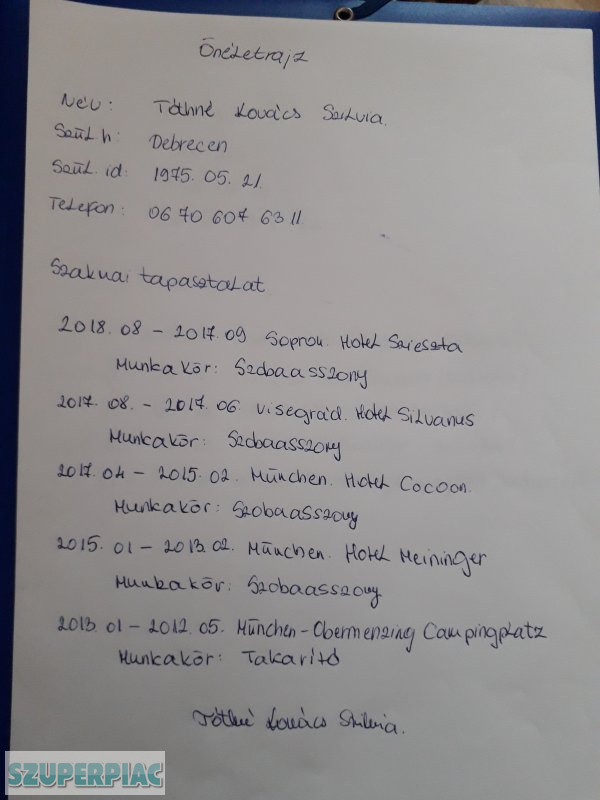 Önéletrajz
Név: Tóthné Kovács Szilvia.
Szül h: Debrecen
Szül. id: 1975. 05. 21.
Telefon: 06 70 607 63 11
Szakmai tapasztalat
2018. 08 - 2017. 09 Sopron. Hotel Szieszta
Munkakör: Szobaasszony
2017. 08. - 2017. 06. Visegrád. Hotel Silvanus
Munkakör: Szobaasszony
2017. 04 - 2015. 02. München. Hotel Cocoon.
Munkakör: Szobaasszony
2015. 01 - 2013. 02. München. Hotel Meininger
Munkakör: Szobaasszony
2013. 01 - 2012. 05. München-Obermenzing Campingplatz
Munkakör: Takarító
Tóthné Kovács Szilvia.
SZUPERPIAC